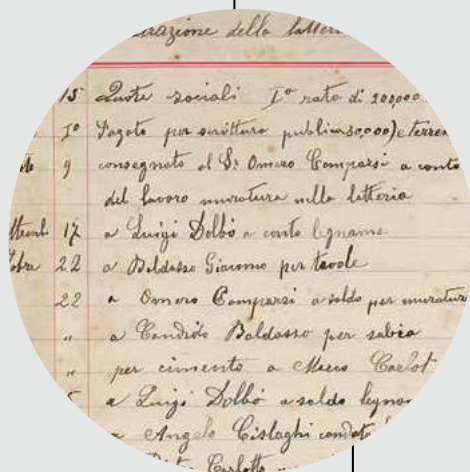 razione della latteri
15 Quote sociali I° rata di 200000
I° Pagato per scrittura publica 30,000) e terren
9 consegnato al S: Omero Comparsi a conto
del lavoro muratura nella latteria
17 a Luigi Dolbò a conto legname
22 a Baldasso Giacomo per tavole
22 a Omero Comparsi a saldo per muratur
" a Candido Baldasso per sabia
" per cimento a Carlot
a Luigi Dolbò a saldo legna
a Angelo Cislaghi
Carlotto